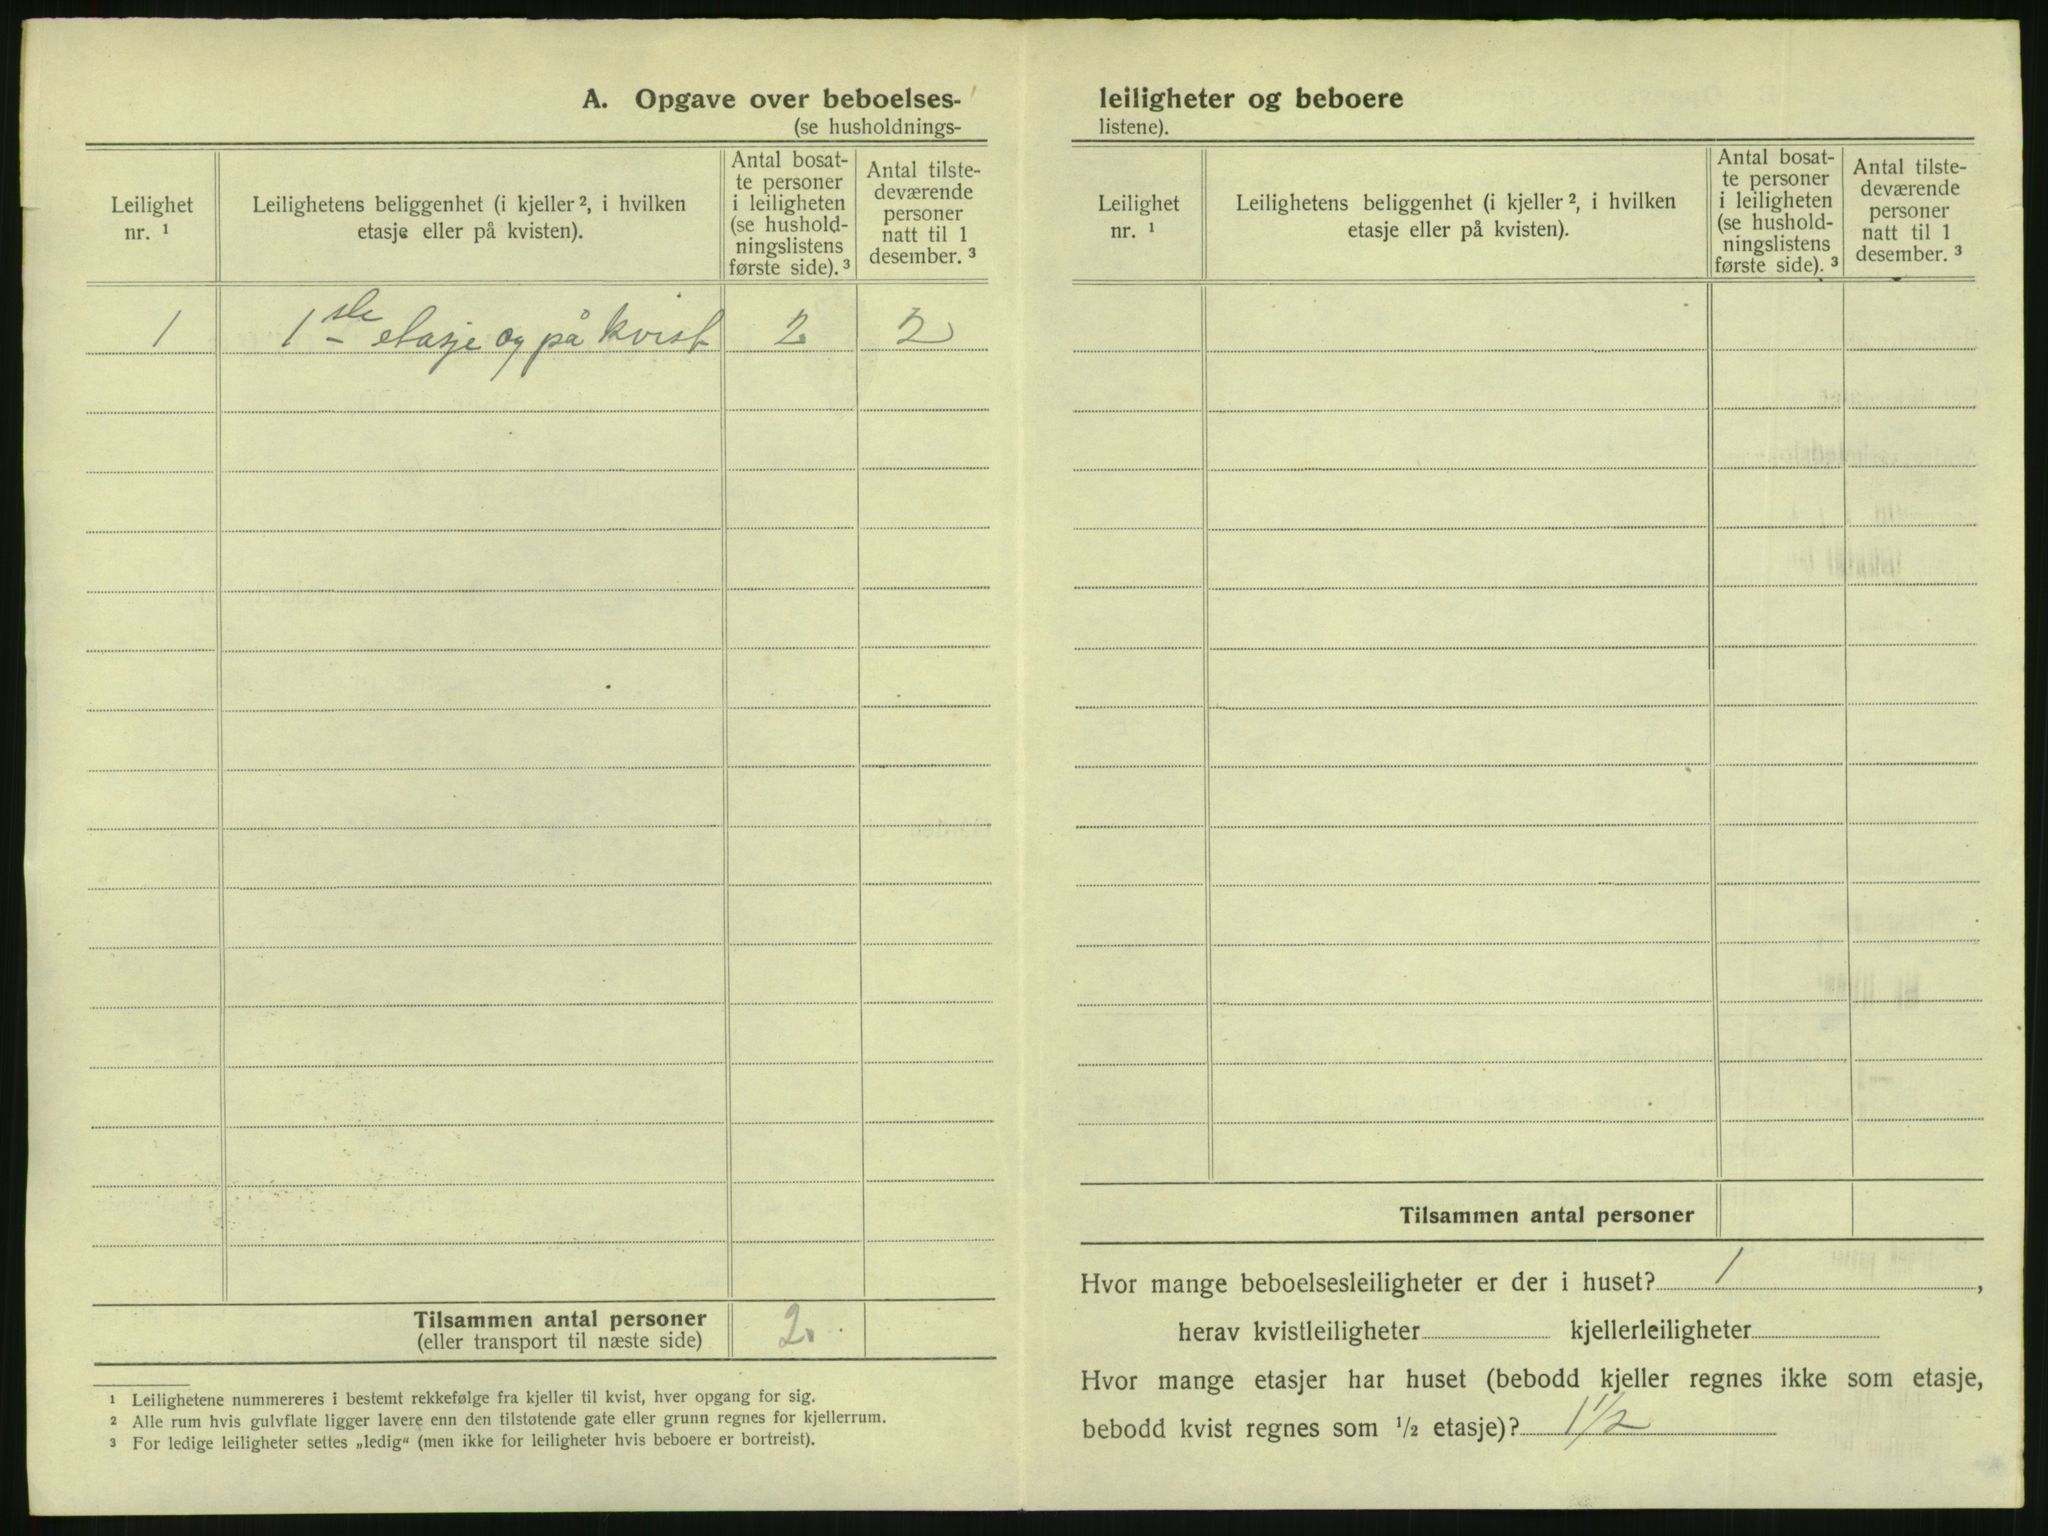 A. Opgave over beboelses-
(se husholdnings-
Leilighet
nr. ¹
Leilighetens beliggenhet (i kjeller ², i hvilken
etasje eller på kvisten).
Antal bosat-
te personer
i leiligheten
(se hushold-
ningslistens
første side). ³
Antal tilste-
deværende
personer
natt til 1
desember. ³
1 1ste etasje og på kvist 2 2
Tilsammen antal personer 2.
(eller transport til næste side)
¹ Leilighetene nummereres i bestemt rekkefølge fra kjeller til kvist, hver opgang for sig.
² Alle rum hvis gulvflate ligger lavere enn den tilstøtende gate eller grunn regnes for kjellerrum.
³ For ledige leiligheter settes „ledig“ (men ikke for leiligheter hvis beboere er bortreist).
leiligheter og beboere
listene).
Leilighet
nr. ¹
Leilighetens beliggenhet (i kjeller ², i hvilken
etasje eller på kvisten).
Antal bosat-
te personer
i leiligheten
(se hushold-
ningslistens
første side). ³
Antal tilste-
deværende
personer
natt til 1
desember. ³
Tilsammen antal personer
Hvor mange beboelsesleiligheter er der i huset? 1,
herav kvistleiligheter kjellerleiligheter
Hvor mange etasjer har huset (bebodd kjeller regnes ikke som etasje,
bebodd kvist regnes som ½ etasje)? 1½